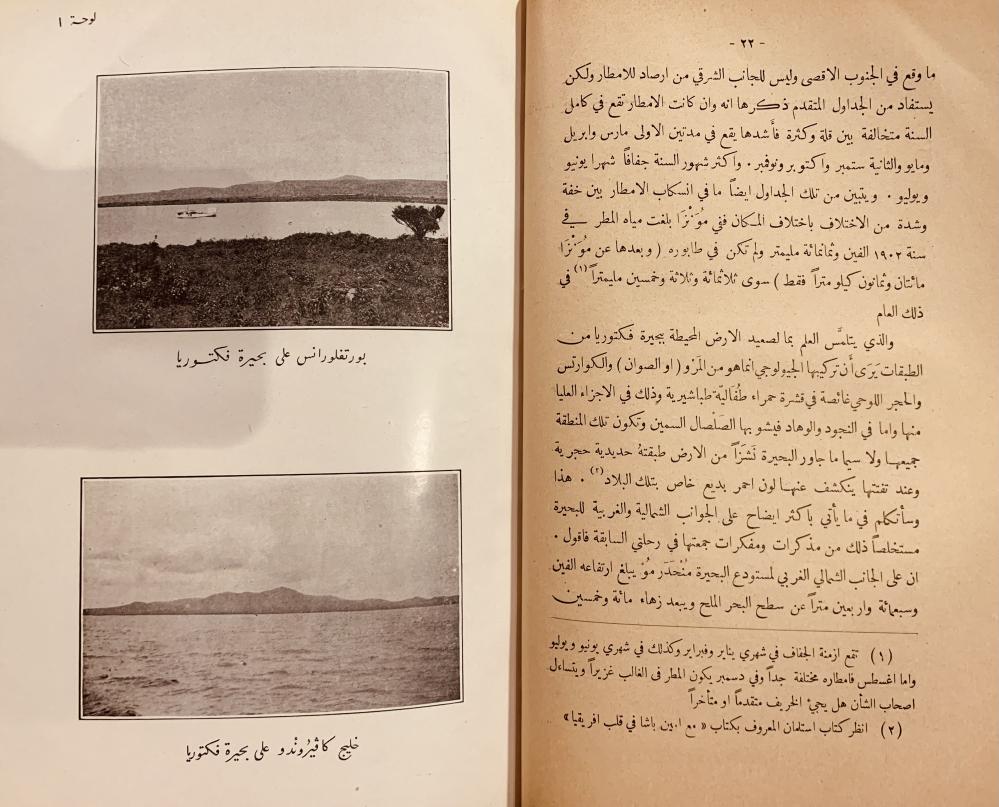 - ٢٢ -
ما وقع في الجنوب الاقصى وليس للجانب الشرقي من ارصاد للامطار ولكن
يستفاد من الجداول المتقدم ذكرها انه وان كانت الامطار تقع في كامل
السنة متخالفة بين قلة وكثرة فأشدها يقع في مدتين الاولى مارس وابريل
ومايو والثانية ستمبر واكتوبر ونوفمبر . واكثر شهور السنة جفافاً شهرا يونيو
ويوليو . ويتبين من تلك الجداول ايضاً ما في انسكاب الامطار بين خفة
وشدة من الاختلاف باختلاف المكان ففي مُوَنْزَا بلغت مياه المطر في
سنة ١٩٠٢ الفين وثمانمائة مليمتر ولم تكن في طابوره ( وبعدها عن مُوَنْزَا
مائتان وثمانون كيلو متراً فقط ) سوى ثلاثمائة وثلاثة وخمسين مليمتراً (١) في
ذلك العام
والذي يتلمَّس العلم بما لصعيد الارض المحيطة ببحيرة فكتوريا من
الطبقات يَرَى أَن تركيبها الجيولوجي انما هو من المَرْو ( او الصوان ) والكوارتس
والحجر اللوحي غائصة في قشرة حمراء طُفَاليّة طباشيرية وذلك في الاجزاء العليا
منها واما في النجود والوهاد فيشوبها الصَلْصال السمين وتكون تلك المنطقة
جميعها ولا سيما ما جاور البحيرة نَشَزَاً من الارض طبقتهُ حديدية حجرية
وعند تفتتها ينكشف عنها لون احمر بديع خاص بتلك البلاد (٢) . هذا
وسأتكلم في ما يأتي باكثر ايضاح على الجوانب الشمالية والغربية للبحيرة
مستخلصاً ذلك من مذكرات ومفكرات جمعتها في رحلتي السابقة فاقول .
ان على الجانب الشمالي الغربي لمستودع البحيرة مُنْحَدَر مَوْ يبلغ ارتفاعه الفين
وسبعمائة واربعين متراً عن سطح البحر الملح ويبعد زهاء مائة وخمسين
(١) تقع ازمنة الجفاف في شهري يناير وفبراير وكذلك في شهري يونيو ويوليو
واما اغسطس فامطاره مختلفة جداً وفي دسمبر يكون المطر فى الغالب غزيراً ويتساءل
اصحاب الشأن هل يجيء الخريف متقدماً او متأخراً
(٢) انظر كتاب استلمان المعروف بكتاب « مع امين باشا في قلب افريقيا »
لوحة ١
بورتفلورانس على بحيرة فكتوريا
خليج كاڤيرُونْدو على بحيرة فكتوريا